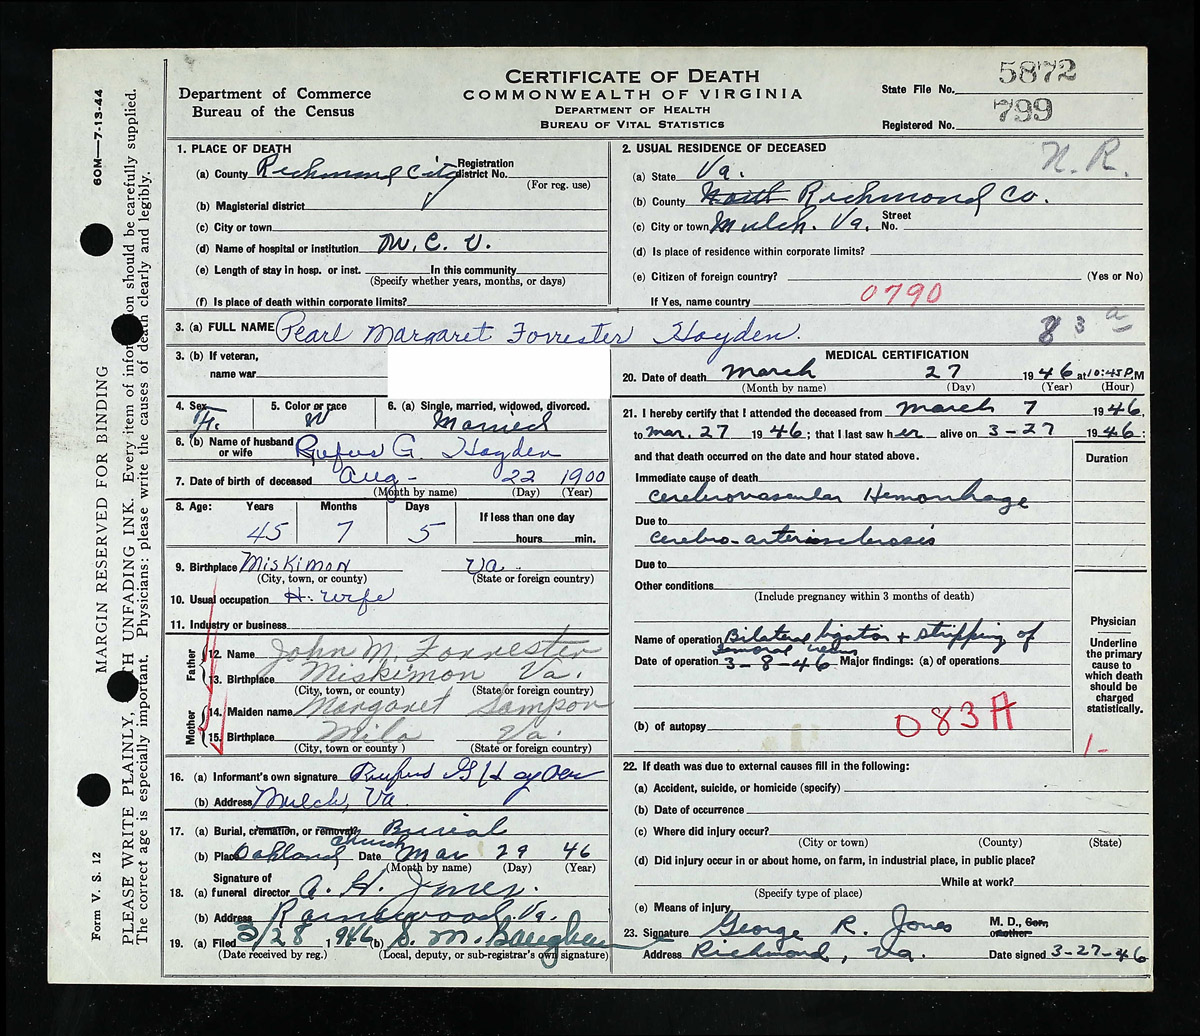 60M—7-13-44
MARGIN RESERVED FOR BINDING
Form V. S. 12
PLEASE WRITE PLAINLY, WITH UNFADING INK. Every item of information should be carefully supplied.
The correct age is especially important. Physicians: please write the causes of death clearly and legibly.
Department of Commerce
Bureau of the Census
CERTIFICATE OF DEATH
COMMONWEALTH OF VIRGINIA
DEPARTMENT OF HEALTH
BUREAU OF VITAL STATISTICS
State File No. 5872
Registered No. 799
1. PLACE OF DEATH
(a) County Richmond City Registration district No.
(For reg. use)
(b) Magisterial district
(c) City or town
(d) Name of hospital or institution M. C. V.
(e) Length of stay in hosp. or inst. In this community
(Specify whether years, months, or days)
(f) Is place of death within corporate limits?
2. USUAL RESIDENCE OF DECEASED
N. R.
(a) State Va.
(b) County North Richmond Co.
(c) City or town Mulch. Va. Street No.
(d) Is place of residence within corporate limits?
(e) Citizen of foreign country? (Yes or No)
If Yes, name country 0790
3. (a) FULL NAME Pearl Margaret Forrester Hayden.
83a
3. (b) If veteran,
name war
4. Sex F. 5. Color or race W 6. (a) Single, married, widowed, divorced. Married
6. (b) Name of husband or wife Rufus G. Hayden
7. Date of birth of deceased Aug- 22 1900
(Month by name) (Day) (Year)
8. Age: Years Months Days If less than one day
45 7 5 hours min.
9. Birthplace Miskimon Va.
(City, town, or county) (State or foreign country)
10. Usual occupation H. wife
11. Industry or business
Father
12. Name John M. Forrester
13. Birthplace Miskimon Va.
(City, town, or county) (State or foreign country)
Mother
14. Maiden name Margaret Sampon
15. Birthplace Mila Va.
(City, town or county ) (State or foreign country)
16. (a) Informant's own signature G Hayden
(b) Address Mulch, Va
17. (a) Burial, cremation, or removal? Burial
(b) Place Oakland Church Date Mar 29 46
(Month by name) (Day) (Year)
18. Signature of
(a) funeral director A. H. Jones.
(b) Address Rainswood, Va.
19. (a) Filed 3/28 1946 (b) S. M. Baughan
(Date received by reg.) (Local, deputy, or sub-registrar's own signature)
MEDICAL CERTIFICATION
20. Date of death March 27 1946 at 10:45 P.M
(Month by name) (Day) (Year) (Hour)
21. I hereby certify that I attended the deceased from March 7 1946,
to Mar. 27 1946; that I last saw her alive on 3-27 1946;
and that death occurred on the date and hour stated above.
Duration
Immediate cause of death
Cerebrovascular Hemorrhage
Due to
Cerebro-arteriosclerosis
Due to
Other conditions
(Include pregnancy within 3 months of death)
Name of operation Bilateral ligation + stripping of femoral veins
Date of operation 3-8-46 Major findings: (a) of operations
(b) of autopsy 083A
Physician
Underline
the primary
cause to
which death
should be
charged
statistically.
1-
22. If death was due to external causes fill in the following:
(a) Accident, suicide, or homicide (specify)
(b) Date of occurrence
(c) Where did injury occur?
(City or town) (County) (State)
(d) Did injury occur in or about home, on farm, in industrial place, in public place?
While at work?
(Specify type of place)
(e) Means of injury
23. Signature George R. Jones M. D., Corn. or other
Address Richmond, Va. Date signed 3-27-46